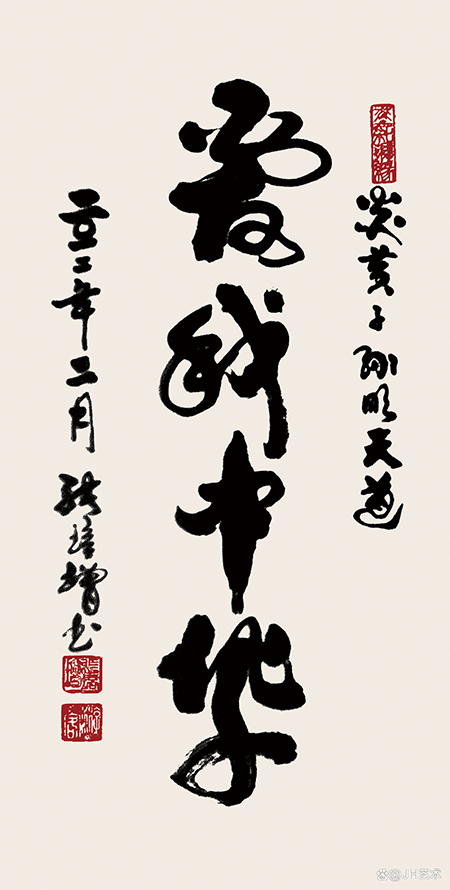 炎黄子孙明天道
爱我中华
二〇二二年二月 张培增书
@JH艺术